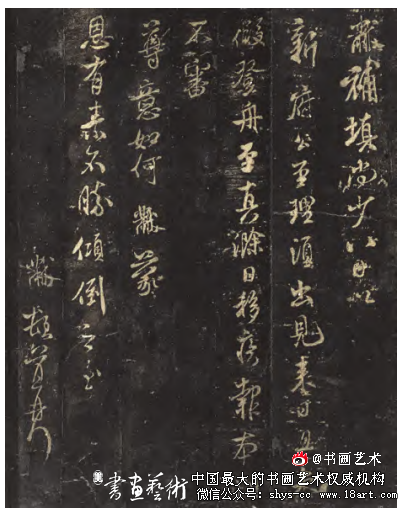 黻補填尚少八日
新府公至理須出見表日
假登舟至真滁日移疾報本
不審
尊意如何黻蒙
恩有素不勝傾倒之至
黻頓首
@书画艺术
書畫藝術 中国最大的书画艺术权威机构
微信公众号：shys-cc www.18art.com